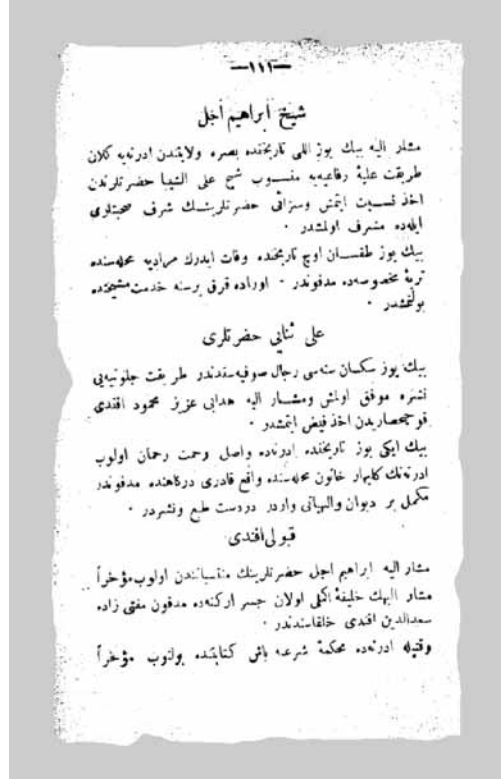 —١١١—
شیخ ابراهیم اجل
مشار الیه بیك یوز اللی تاریخنده بصره ولایتندن ادرنه‌یه کلان
طریقت علیهٔ رفاعیه‌یه منسوب شیخ علی الشیفا حضرتلرندن
اخذ نسبت ایتمش وسزائی حضرتلرینك شرف صحبتلری
ایله‌ده مشرف اولمشدر .
بیك یوز طقسان اوچ تاریخنده وفات ایدرك مرادیه محله‌سنده
تربهٔ مخصوصه‌ده مدفوندر . اوراده قرق بر سنه خدمت مشیختده
بولنمشدر .
علی ثنایی حضرتلری
بیك یوز سکسان سنه‌سی رجال صوفیه‌سندندر طریقت جلوتیه‌یی
نشره موفق اولمش ومشار الیه هدایی عزیز محمود افندی
قوجحصاریدن اخذ فیض ایتمشدر .
بیك ایکی یوز تاریخنده ادرنه‌ده واصل رحمت رحمان اولوب
ادرنه‌نك کلبهار خاتون محله‌سنده واقع قادری درکاهنده مدفوندر
مکمل بر دیوان والهیاتی واردر دردست طبع ونشردر .
قبولی افندی
مشار الیه ابراهیم اجل حضرتلرینك منتسباتندن اولوب مؤخراً
مشار الیهك خلیفهٔ اکملی اولان جسر ارکنه‌ده مدفون مفتی زاده
سعدالدین افندی خلفاسندندر .
وقتیله ادرنه‌ده محکمهٔ شرعیه باش کتابتنده بولنوب مؤخراً